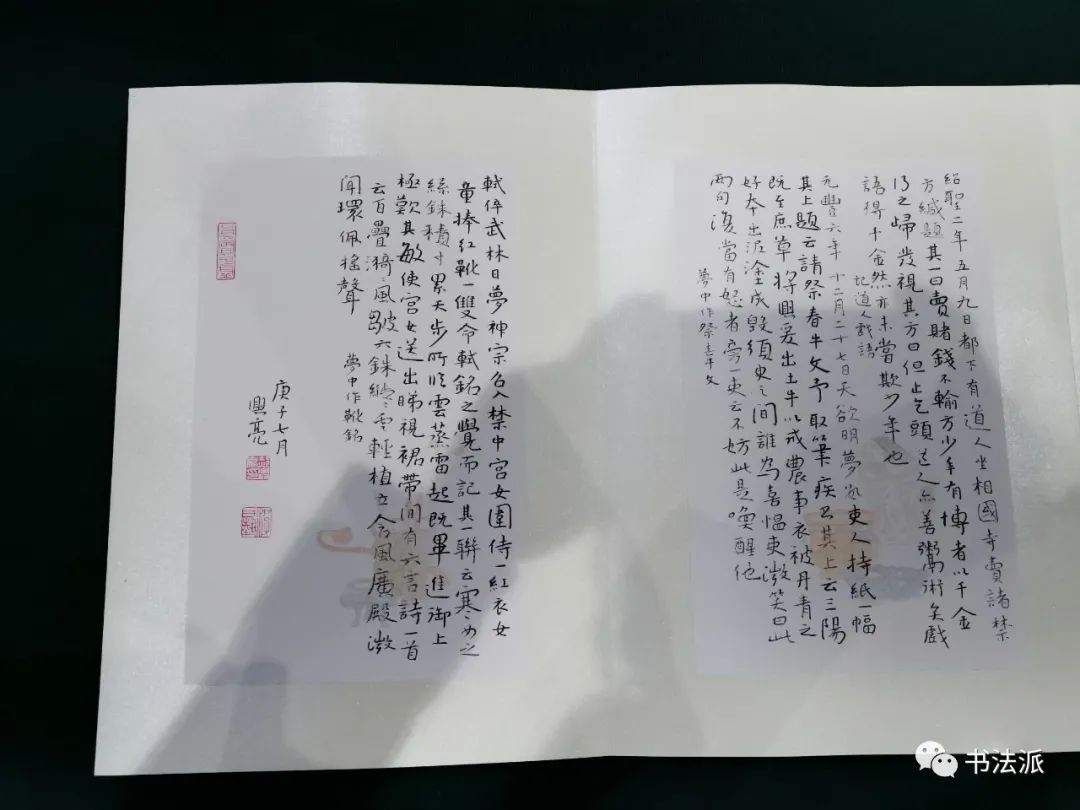 紹聖二年五月九日都下有道人坐相國寺賣諸禁
方緘題其一曰賣賭錢不輸方少年有博者以千金
得之歸發視其方曰但止乞頭道人亦善鬻術矣戲
語得千金然亦未嘗欺少年也
記道人戲語
元豐六年十二月二十七日天欲明夢數吏人持紙一幅
其上題云請祭春牛文予取筆疾書其上云三陽
既至庶草將興爰出土牛以戒農事衣被丹青之
好本出泥塗成毀須臾之間誰為喜慍吏微笑曰此
兩句復當有怒者旁一吏云不妨此是喚醒他
夢中作祭春牛文
軾倅武林日夢神宗召入禁中宮女圍侍一紅衣女
童捧紅靴一雙命軾銘之覺而記其一聯云寒女之
絲銖積寸累天步所臨雲蒸雷起既畢進御上
極歎其敏使宮女送出睇視裙帶間有六言詩一首
云百疊漪風皺六銖縰雲輕植立含風廣殿微
聞環佩搖聲
夢中作靴銘
庚子七月
興亮
书法派